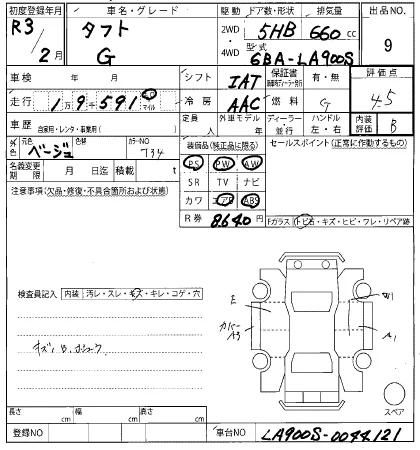 初度登録年月 車名・グレード 駆動 ドア数・形状 排気量 出品NO.
R3 / 2月 タフト 2WD・4WD 5HB 660cc 9
G 型式 6BA-LA900S
車検 年 月 シフト IAT 保証書 有・無 評価点
走行 1万9千591 km マイル 冷房 AAC 燃料 G 4.5
車歴 自家用・レンタ・事業用( ) 定員 人 外車モデル 年 ディーラー・並行 ハンドル 左・右 内装評価 B
外色 元色 ベージュ 色替 カラーNO T34 装備品(純正品に限る) セールスポイント(正常に動作するもの)
名義変更期限 月 日迄 積載 t PS PW AW
注意事項(欠品・修復・不具合箇所および状態) SR TV ナビ
カワ エアB ABS
R券 8640円 Fガラス トビ石・キズ・ヒビ・ワレ・リペア跡
検査員記入 内装 汚レ・スレ・キズ・キレ・コゲ・穴
E
A1
スペア
長さ cm 幅 cm 高さ cm
登録NO 車台NO LA900S-0044121